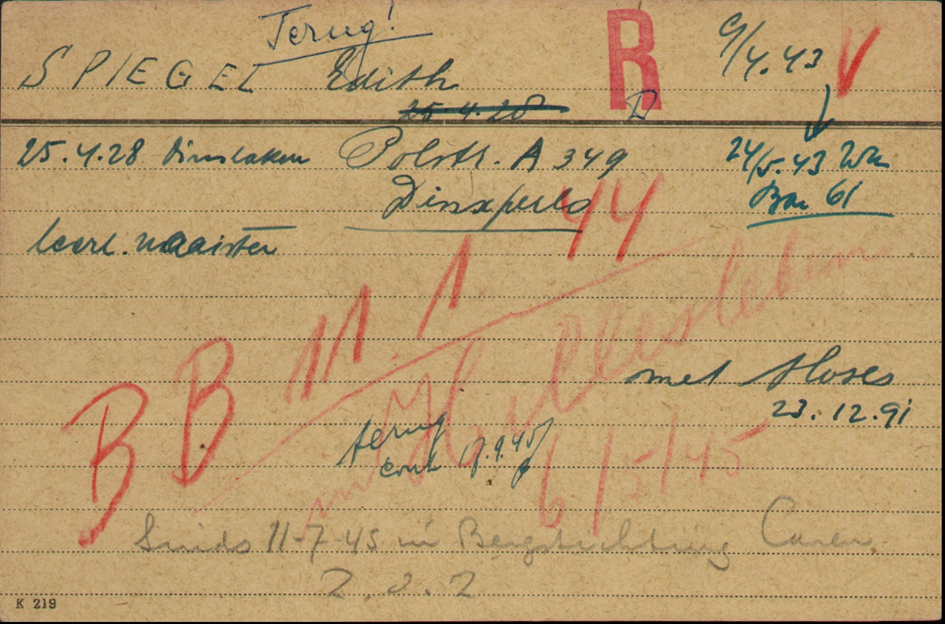 Terug!
SPIEGEL Edith R 9/4.43 V
25.4.28
25.4.28 Dinslaken Polstr. A 349 24/5.43 Wbk
Dinxperlo Bar 61
leerl. naaister
BB 11 1 44
in Hillersleben
met Moses
23.12.91
terug
cont 17.9.45
6/5/45
Sinds 11-7-45 in Bergstichting Laren
Z.O.Z
K 219